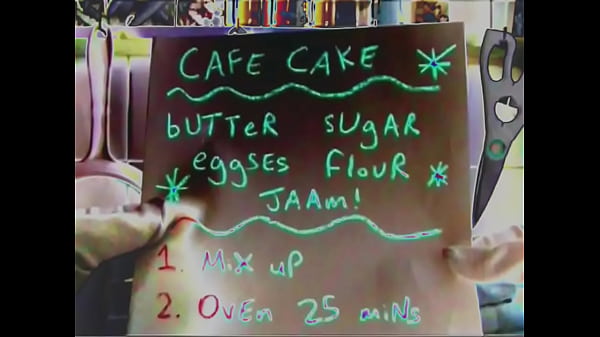 CAFE CAKE
bUTTeR sUgAR
eggses flouR
JAAm!
1. Mix uP
2. OvEn 25 miNs